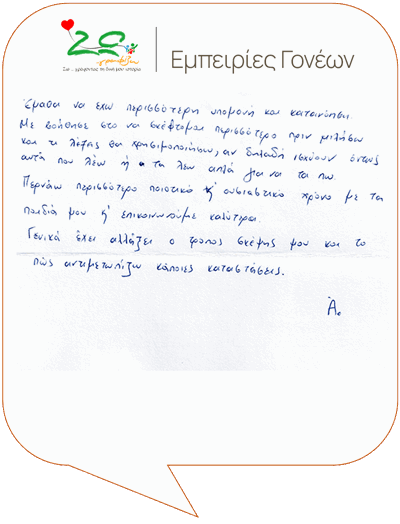 Ζω ... γράφοντας τη δική μου ιστορία
Εμπειρίες Γονέων
Έμαθα να έχω περισσότερη υπομονή και κατανόηση.
Με βοήθησε στο να σκέφτομαι περισσότερο πριν μιλήσω
και τι λέξεις θα χρησιμοποιήσω, αν δηλαδή ισχύουν όντως
αυτά που λέω ή τα λέω απλά για να τα πω
Περνάω περισσότερο ποιοτικό κ' ουσιαστικό χρόνο με τα
παιδιά μου κ' επικοινωνούμε καλύτερα.
Γενικά έχει αλλάξει ο τρόπος σκέψης μου και το
πώς αντιμετωπίζω κάποιες καταστάσεις.
Α.